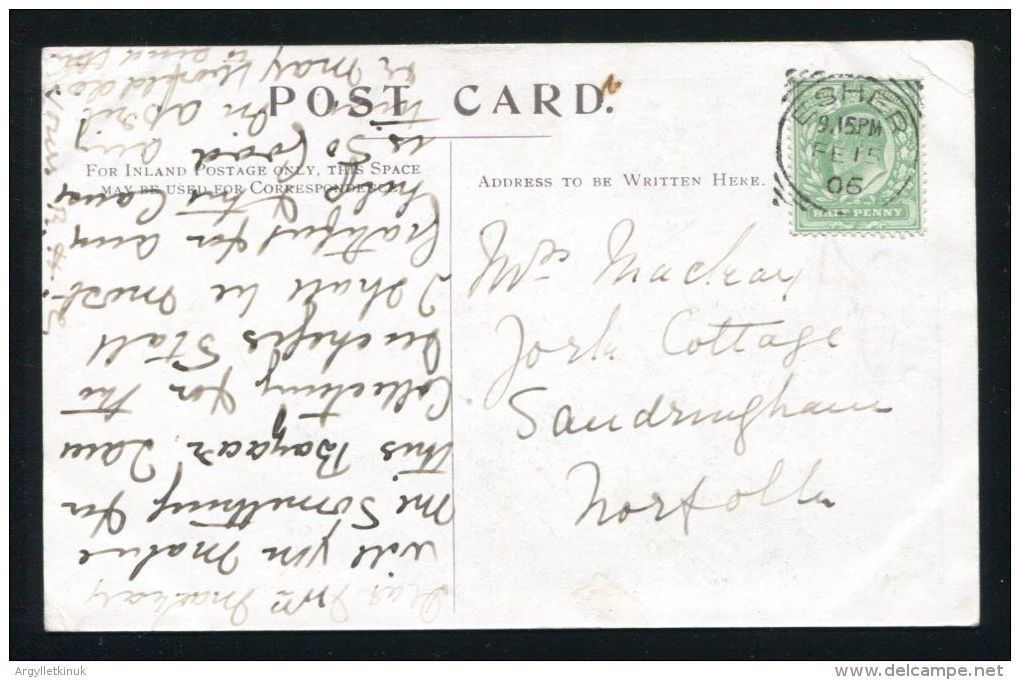 POST CARD.
FOR INLAND POSTAGE ONLY, THIS SPACE
MAY BE USED FOR CORRESPONDENCE.
ADDRESS TO BE WRITTEN HERE.
ESHER
9.15PM
FE 15
06
HALF PENNY
Mrs Mackay
York Cottage
Sandringham
Norfolk
Dear Mrs Mackay
will you make
me something for
this Bazaar. I am
Collecting for the
Duchess's Stall
I shall be most
grateful for any
help. The Cause
is so Good
in April
or May
Argylletkinuk
www.delcampe.net